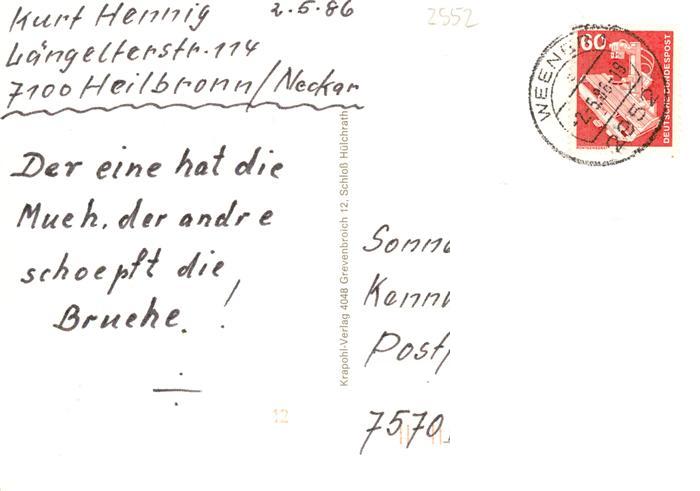 Kurt Hennig 2.5.86
Längelterstr. 114
7100 Heilbronn/Neckar
2552
60
DEUTSCHE BUNDESPOST
Der eine hat die
Mueh, der andre
schoepft die
Bruehe.!
Krapohl-Verlag 4048 Grevenbroich 12, Schloß Hülchrath
Post
7570
12